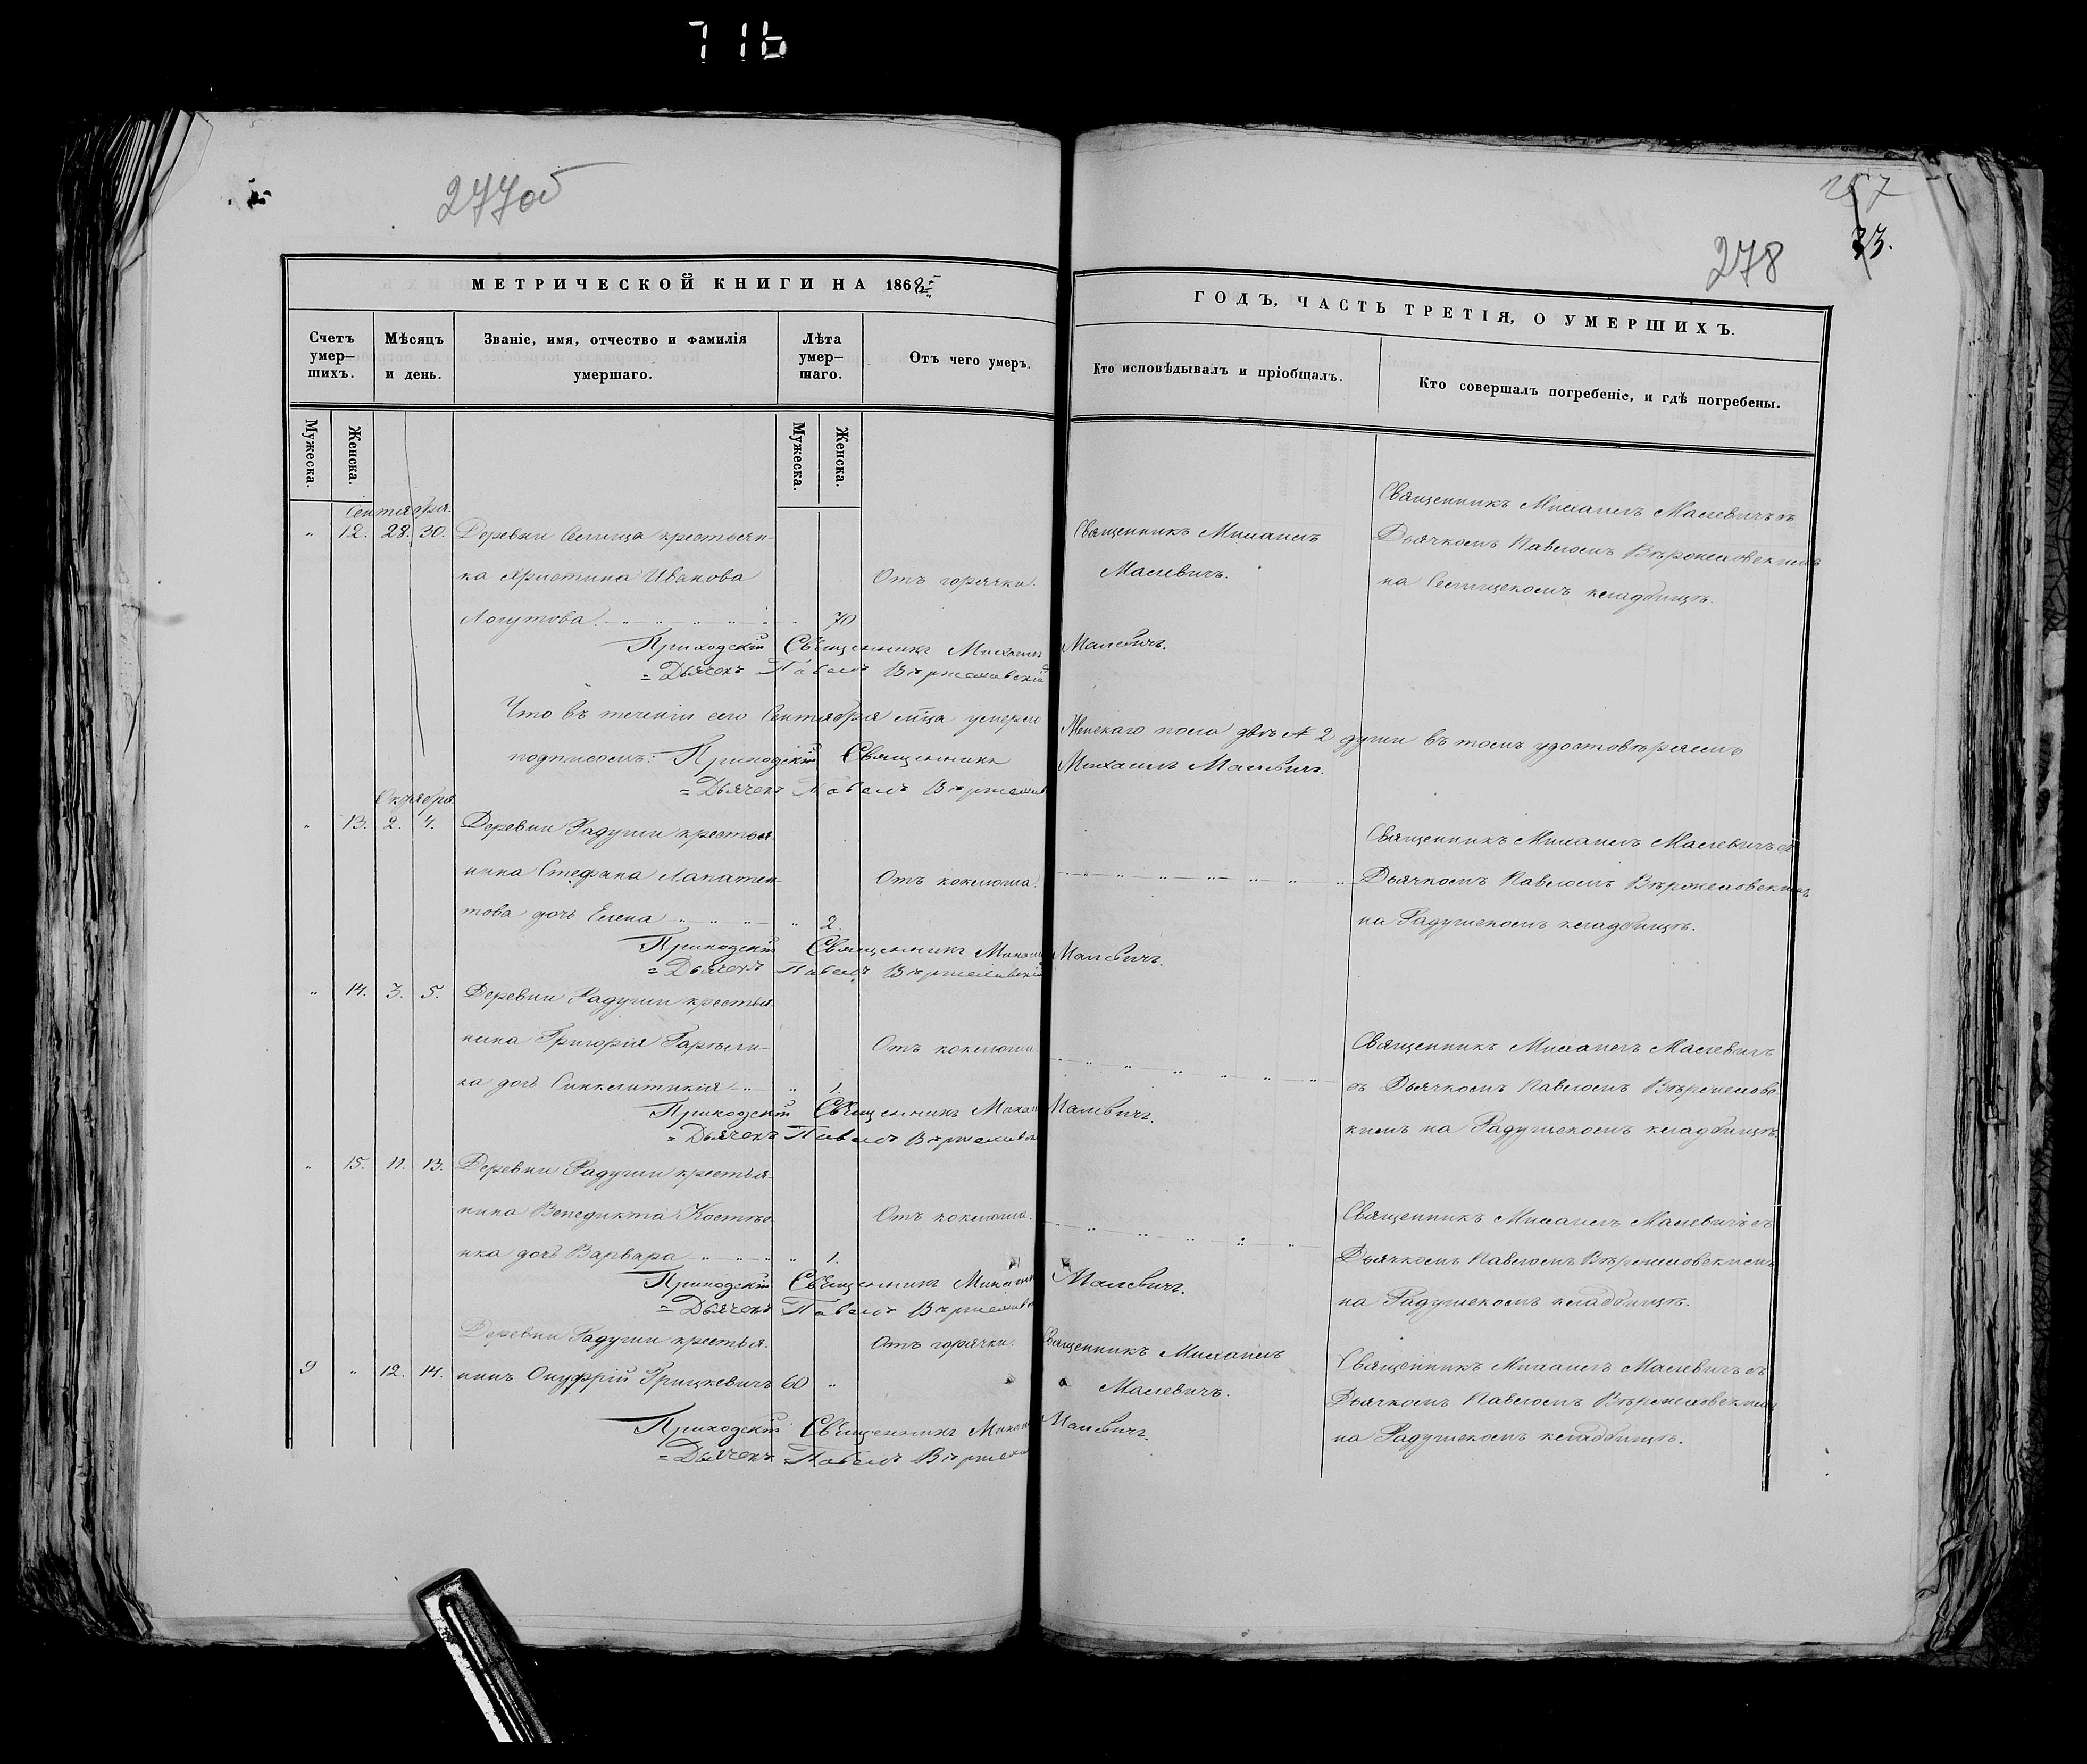 716
277об
278
33.
МЕТРИЧЕСКОЙ КНИГИ НА 1868й
ГОДЪ, ЧАСТЬ ТРЕТІЯ, О УМЕРШИХЪ.
Счетъ умер–шихъ.
Мѣсяцъ и день.
Званіе, имя, отчество и фамилія умершаго.
Лѣта умер–шаго.
Отъ чего умеръ.
Кто исповѣдывалъ и пріобщалъ.
Кто совершалъ погребеніе, и гдѣ погребены.
Мужеска.
Женска.
Мужеска.
Женска.
Сентября.
" 12. 28. 30. Деревни Селища крестьян-
ка Христина Иванова
Логутова. 70
Отъ горячки.
Священникъ Михаилъ
Малевичъ.
Священникъ Михаилъ Малевичъ съ
Дьячкомъ Павломъ Вѣржеловскимъ
на Селищскомъ кладбищѣ.
Приходскій Священникъ Михаилъ Малевичъ.
= Дьячекъ Павелъ Вѣржеловскій
Что въ теченіи сего Сентября м̃ца умерло Женскаго пола 2 души въ томъ удостовѣряемъ
подписомъ: Приходскій Священникъ Михаилъ Малевичъ.
= Дьячекъ Павелъ Вѣржелов
Октября
" 13. 2. 4. Деревни Радуши крестья-
нина Стефана Лапатен-
това дочь Елена " 2.
Отъ коклюша.
Священникъ Михаилъ Малевичъ съ
Дьячкомъ Павломъ Вѣржеловскимъ
на Радушскомъ кладбищѣ.
Приходскій Священникъ Михаилъ Малевичъ.
= Дьячекъ Павелъ Вѣржеловскій
" 14. 3. 5. Деревни Радуши крестья-
нина Григорія
ка дочь Синклитикія " 1.
Отъ коклюша.
Священникъ Михаилъ Малевичъ
съ Дьячкомъ Павломъ Вѣржеловс-
кимъ на Радушскомъ кладбищѣ.
Приходскій Священникъ Михаилъ Малевичъ.
= Дьячекъ Павелъ Вѣржеловск
" 15. 11. 13. Деревни Радуши крестья-
нина Венедикта
нка дочь Варвара " 1.
Отъ коклюша.
Священникъ Михаилъ Малевичъ съ
Дьячкомъ Павломъ Вѣржеловскимъ
на Радушскомъ кладбищѣ.
Приходскій Священникъ Михаилъ Малевичъ.
= Дьячекъ Павелъ Вѣржеловск
Деревни Радуши крестья-
9 " 12. 14. нинъ Онуфрій Грицкевичъ 60 "
Отъ горячки.
Священникъ Михаилъ
Малевичъ.
Священникъ Михаилъ Малевичъ съ
Дьячкомъ Павломъ Вѣржеловскимъ
на Радушскомъ кладбищѣ.
Приходскій Священникъ Михаилъ Малевичъ.
= Дьячекъ Павелъ Вѣржелов